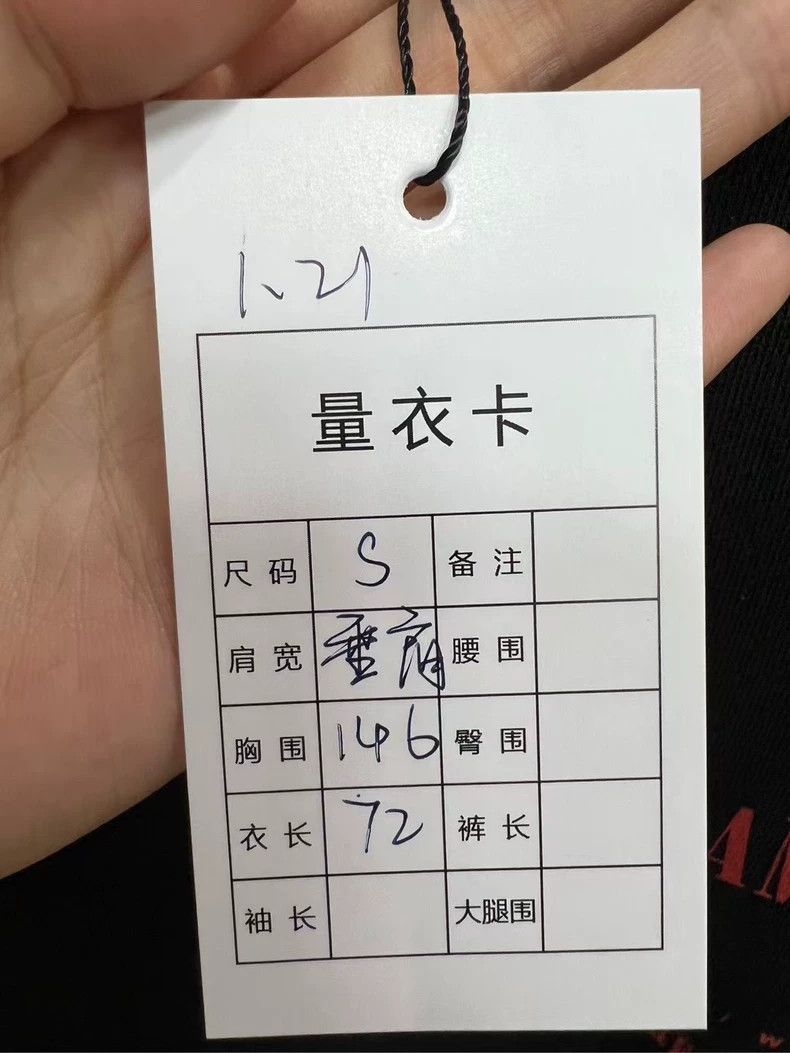 1.21
量衣卡
尺码 S 备注
肩宽 垂肩 腰围
胸围 146 臀围
衣长 72 裤长
袖长 大腿围
AN